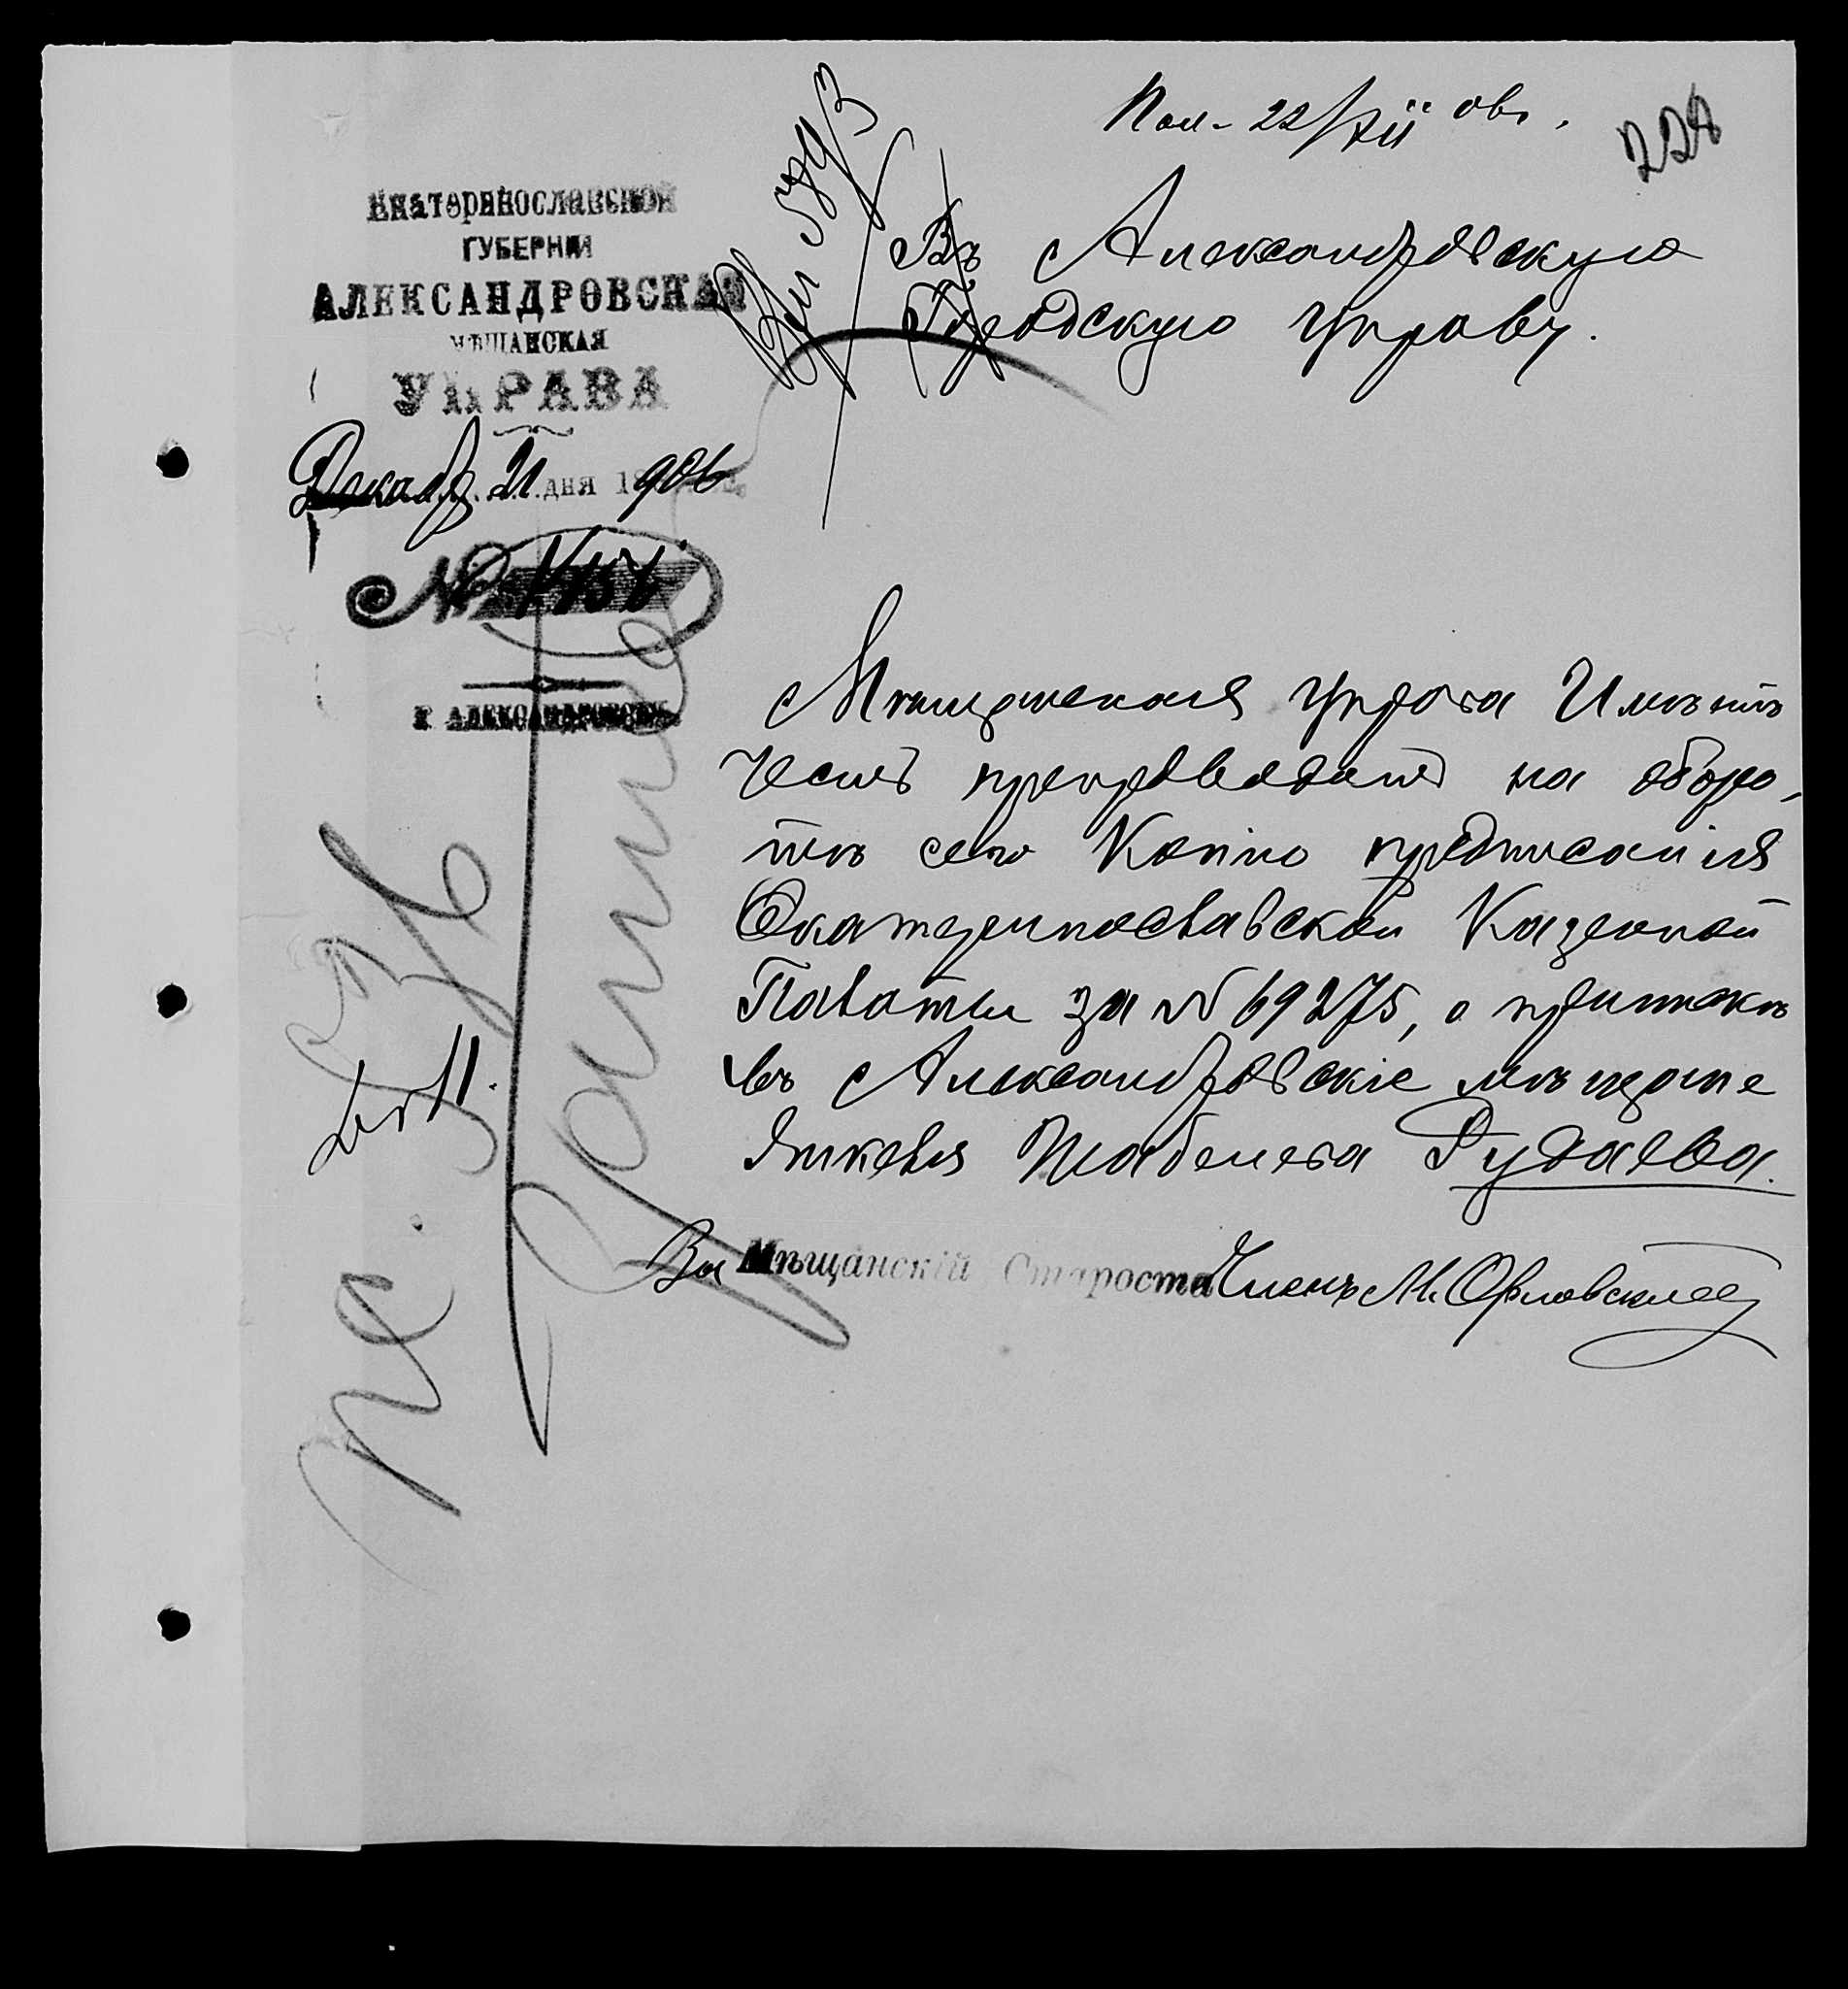 Пол. 22/XII 06 г.
228
Вх 5793
Екатеринославской
ГУБЕРНІИ
АЛЕКСАНДРОВСКАЯ
МѢЩАНСКАЯ
УПРАВА
Декабр. 21 дня 1906
№
Г. АЛЕКСАНДРОВСКЪ
Въ Александровскую
Городскую Управу.
Мѣщанская Управа Имѣетъ
честь препроводить на оборо-
тѣ сего Копію предписанія
Екатеринославской Казенной
Палаты за № 69275, о припискѣ
въ Александровскіе мѣщане
Янкеля Шабелева Рудаева.
За Мѣщанскій Староста Членъ М. Орловскій